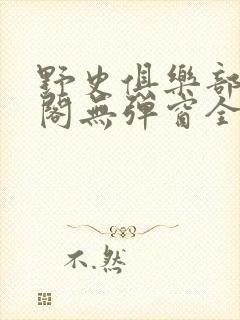 野史俱樂部
閣無彈窗全
不.然